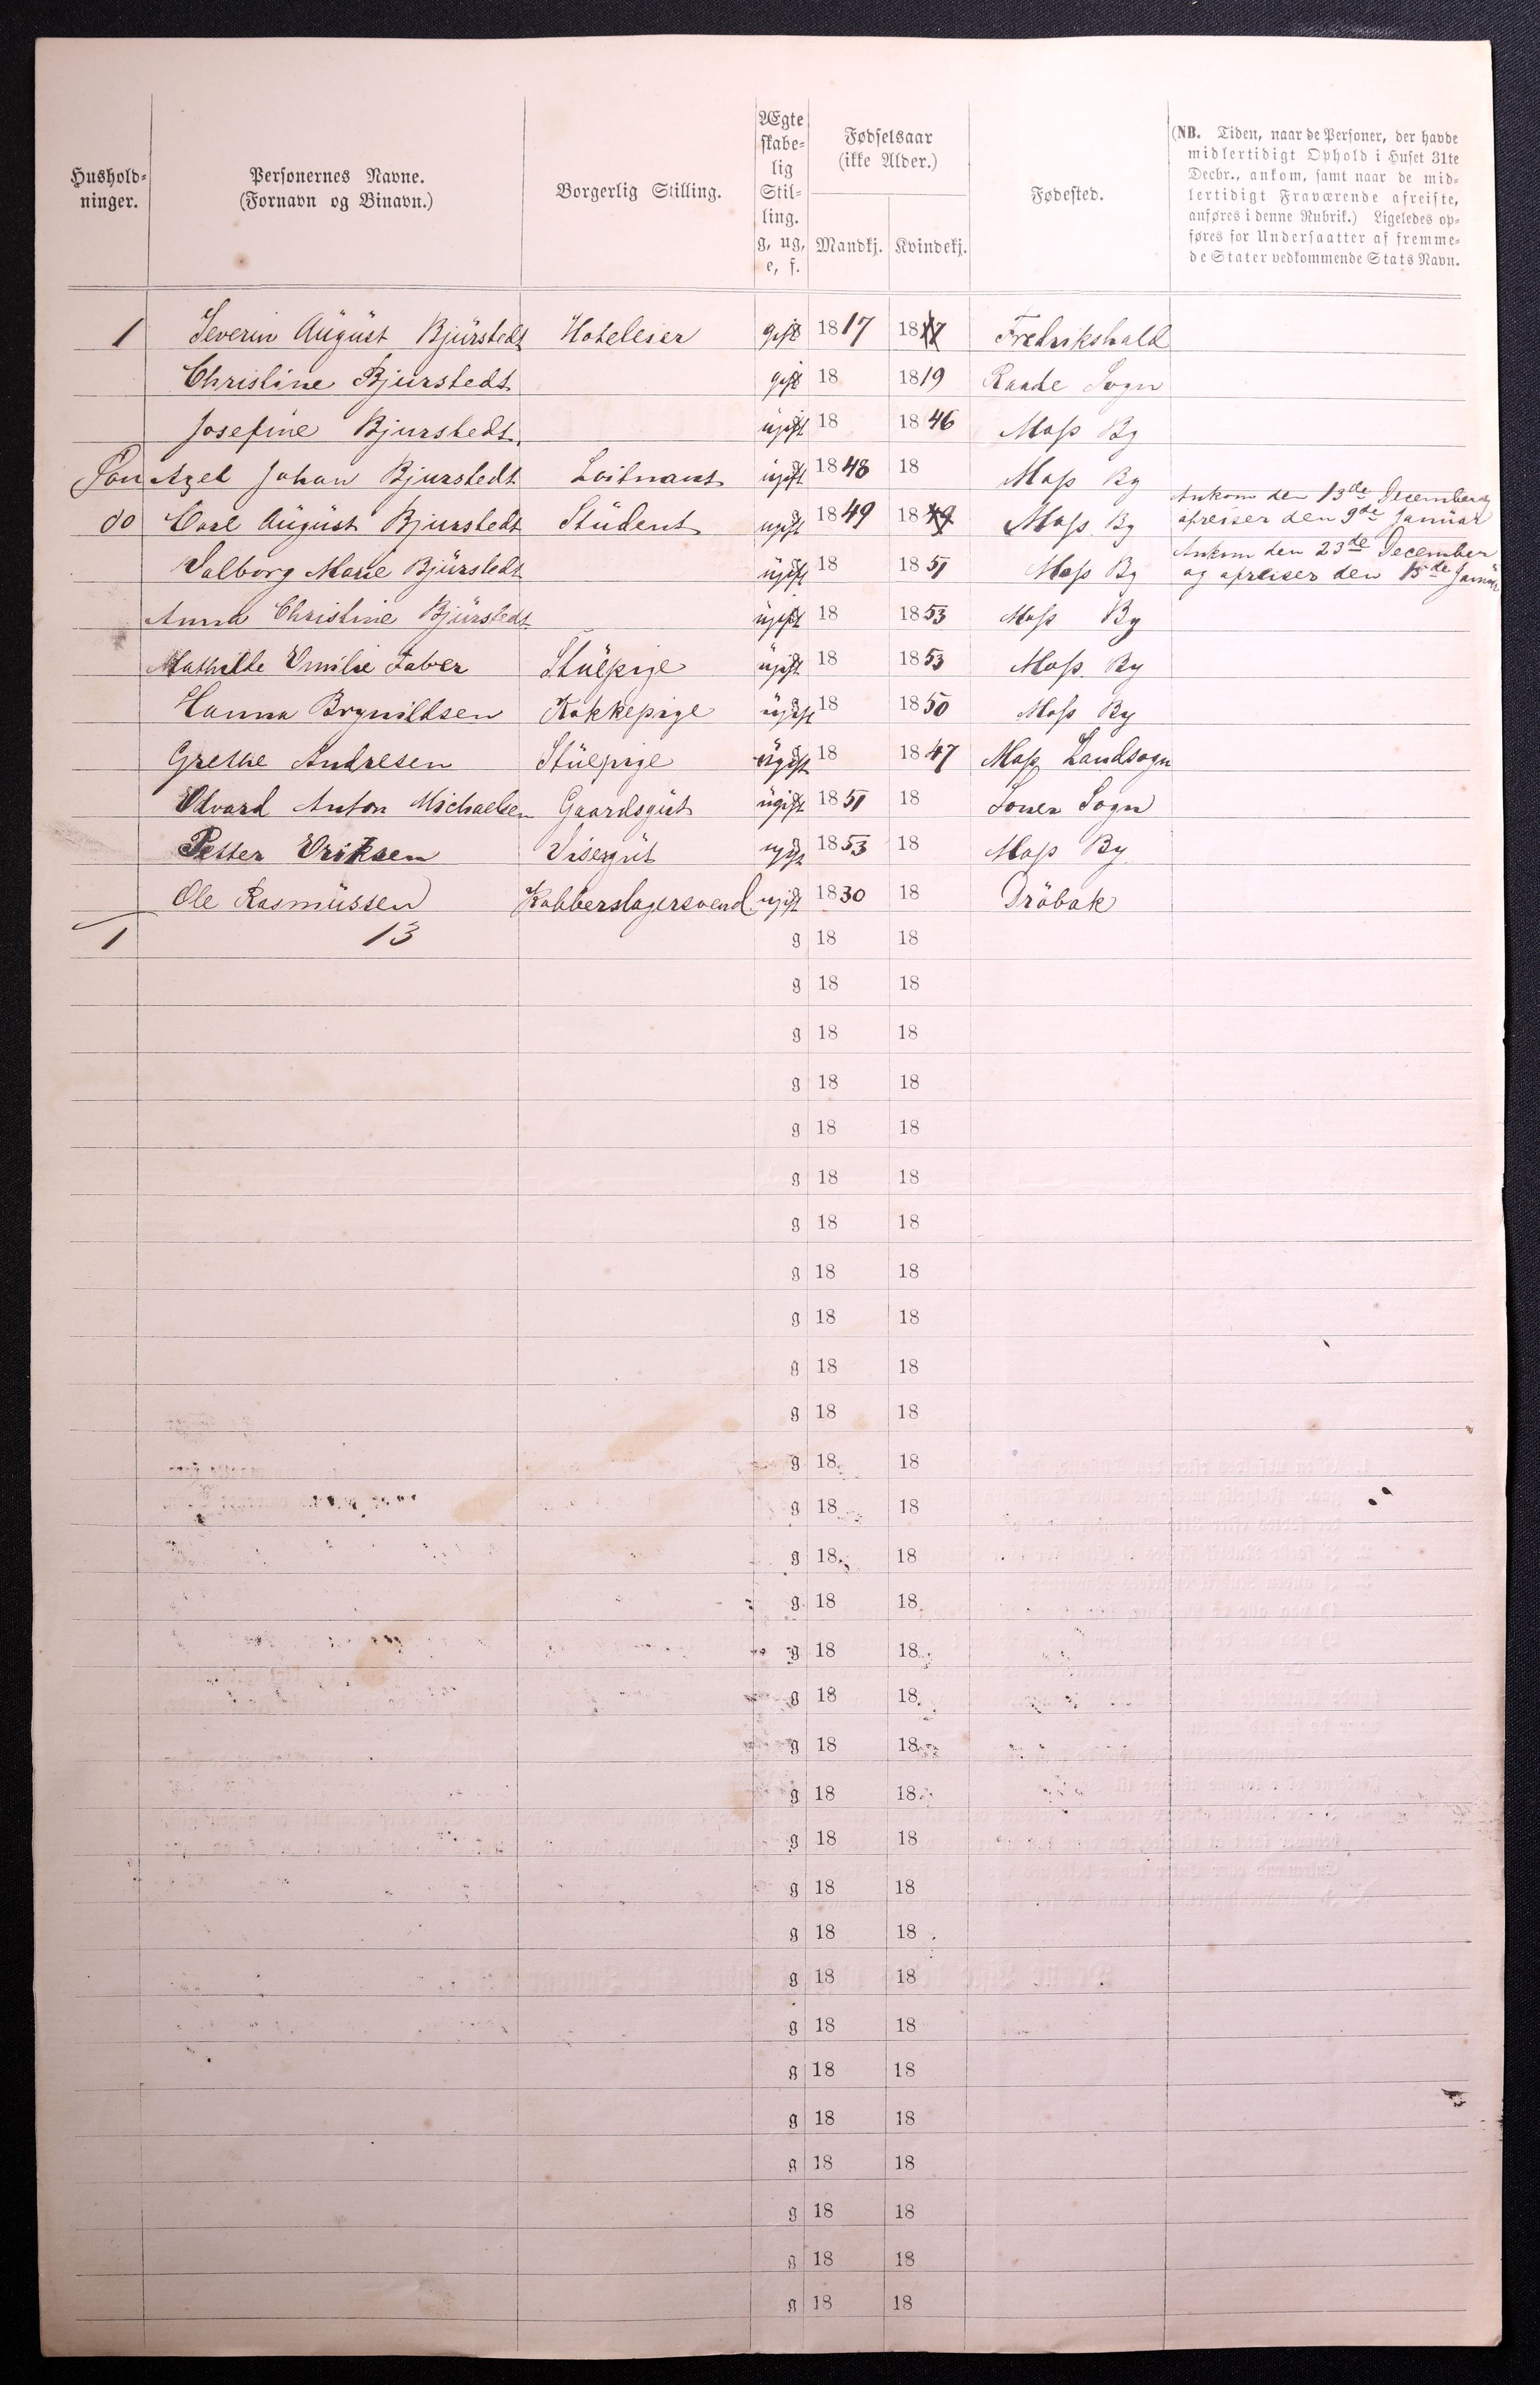 Hushold-
ninger.
Personernes Navne.
(Fornavn og Binavn.)
Borgerlig Stilling.
Ægte
skabe-
lig
Stil-
ling.
g, ug,
e, f.
Fødselsaar
(ikke Alder.)
Mandkj. Kvindekj.
Fødested.
(NB. Tiden, naar de Personer, der havde
midlertidigt Ophold i Huset 31te
Decbr., ankom, samt naar de mid-
lertidigt Fraværende afreiste,
anføres i denne Rubrik.) Ligeledes op-
føres for Undersaatter af fremme-
de Stater vedkommende Stats Navn.
1 Severin August Bjurstedt Hoteleier gift 1817 1817 Fredrikshald
Christine Bjurstedt gift 18 1819 Raade Sogn
Josefine Bjurstedt. ugift 18 1846 Moss By
Søn Axel Johan Bjurstedt Loitnant ugift 1848 18 Moss By
do Carl August Bjurstedt Student ugift 1849 1849 Moss By Ankom den 13de December
afreiser den 9de Januar
Valborg Marie Bjurstedt ugift 18 1851 Moss By Ankom den 23de December
og afreiser den 15de Januar
Anna Christine Bjurstedt ugift 18 1853 Moss By
Mathilde Emilie Faber Stuepige ugift 18 1853 Moss By
Hanna Brynildsen Kokkepige ugift 18 1850 Moss By
Grethe Andresen Stuepige ugift 18 1847 Moss Landsogn
Edvard Anton Michaelsen Gaardsgut ugift 1851 18 Soner Sogn
Petter Eriksen Visergut ugift 1853 18 Moss By
Ole Rasmussen Kobberslagersvend ugift 1830 18 Dröbak
1 13 g 18 18
g 18 18
g 18 18
g 18 18
g 18 18
g 18 18
g 18 18
g 18 18
g 18 18
g 18 18
g 18 18
g 18 18
g 18 18
g 18 18
g 18 18
g 18 18
g 18 18
g 18 18
g 18 18
g 18 18
g 18 18
g 18 18
g 18 18
g 18 18
g 18 18
g 18 18
g 18 18
g 18 18
g 18 18
g 18 18